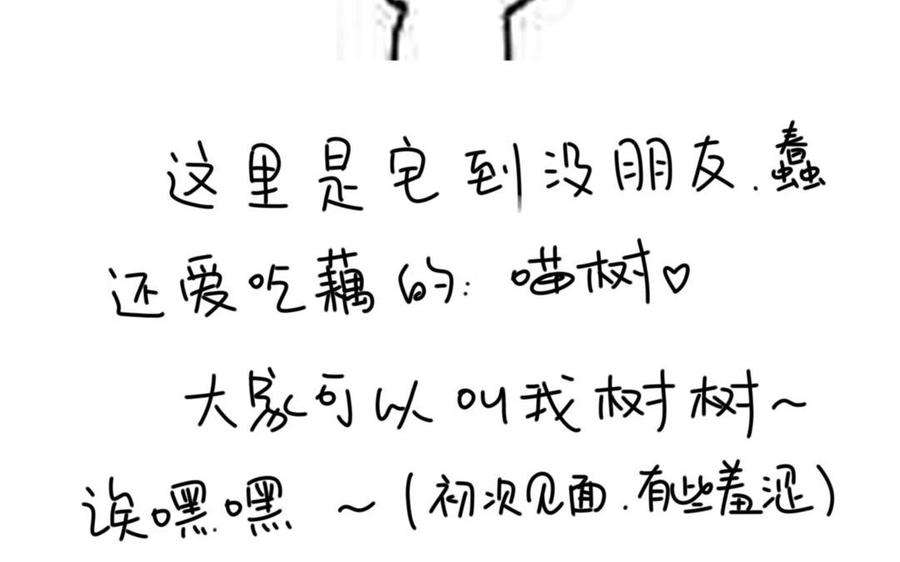 这里是宅到没朋友.蠢
还爱吃藕的:喵树♡
大家可以叫我树树~
诶嘿嘿~(初次见面.有些羞涩)